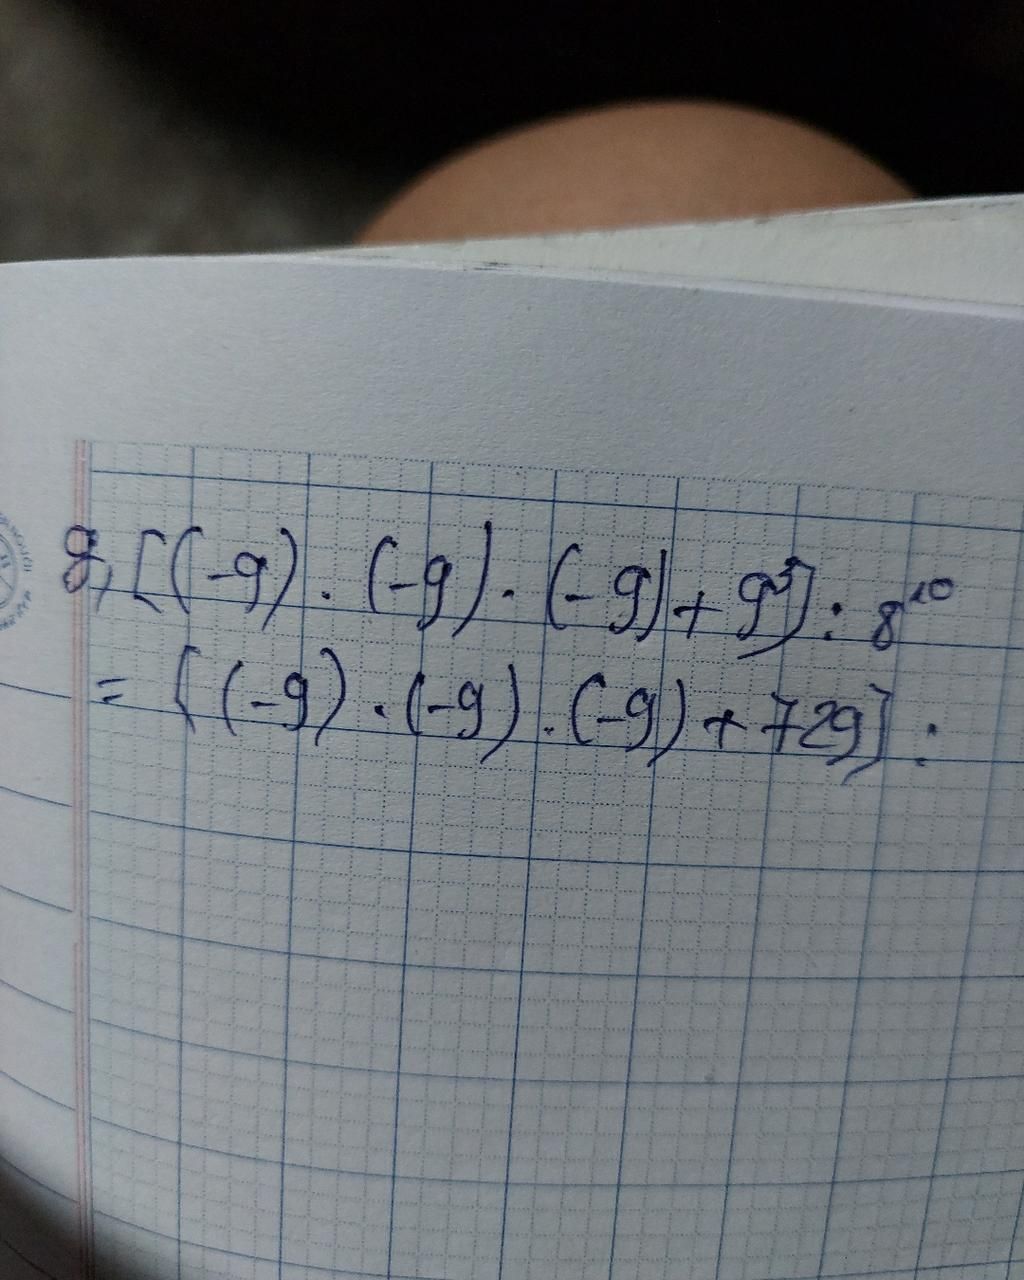 g, [(-9) . (-9) . (-9) + 9³] : 8¹⁰
= [(-9) . (-9) . (-9) + 729] :